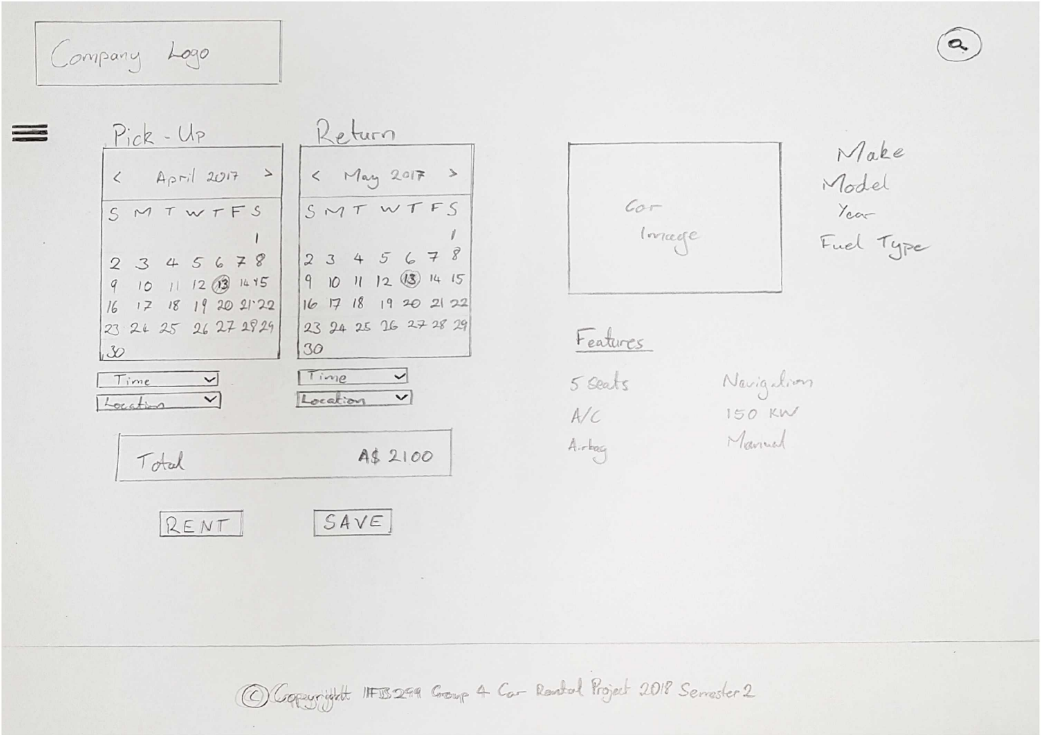 Company Logo
Pick-Up
< April 2017 >
S M T W T F S
1
2 3 4 5 6 7 8
9 10 11 12 13 14 15
16 17 18 19 20 21 22
23 24 25 26 27 28 29
30
Time
Location
Return
< May 2017 >
S M T W T F S
1
2 3 4 5 6 7 8
9 10 11 12 13 14 15
16 17 18 19 20 21 22
23 24 25 26 27 28 29
30
Time
Location
Total A$ 2100
RENT
SAVE
Car
Image
Make
Model
Year
Fuel Type
Features
5 Seats
A/C
Airbag
Navigation
150 KW
Manual
© Copyright IFB299 Group 4 Car Rental Project 2018 Semester 2